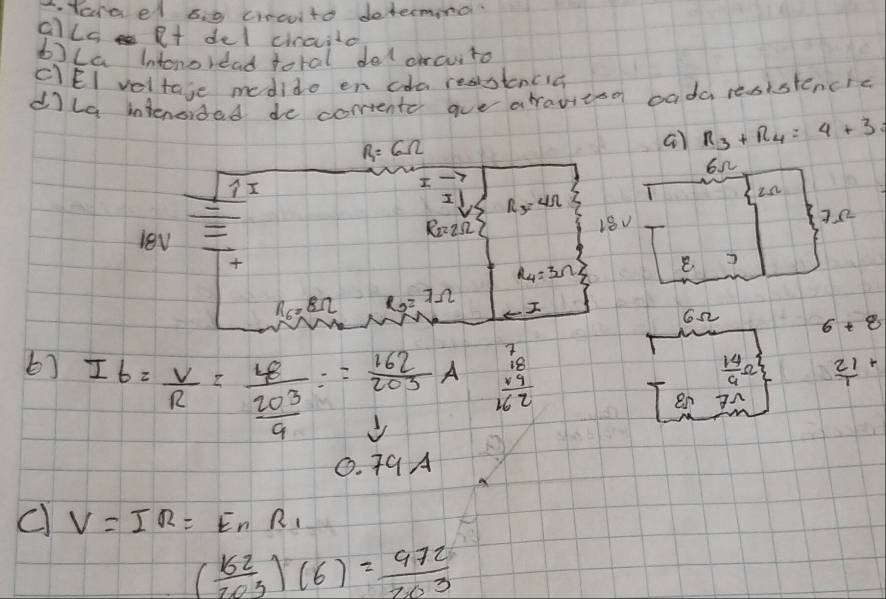 2. Para el sig circuito determina:
a) La Rt del circuito
b) La Intensidad total del circuito
c) El voltaje medido en cda resistencia
d) La intensidad de corriente que atraviesa cada resistencia
a) R3 + R4 = 4 + 3 =
R1 = 6Ω
I →
↑ I
I ↓
R2=2Ω
R3=4Ω
R4=3Ω
18V
+
R6=8Ω
R5=7Ω
← I
6Ω
2Ω
7Ω
18V
8
7
6Ω
14/9 Ω
8Ω
7Ω
6 + 8
21/1 +
b) I6 = V/R = 18/(203/9) = 162/203 A
↓
0.79 A
7
18
x9
162
c) V = IR = En R1
(162/203)(6) = 972/203